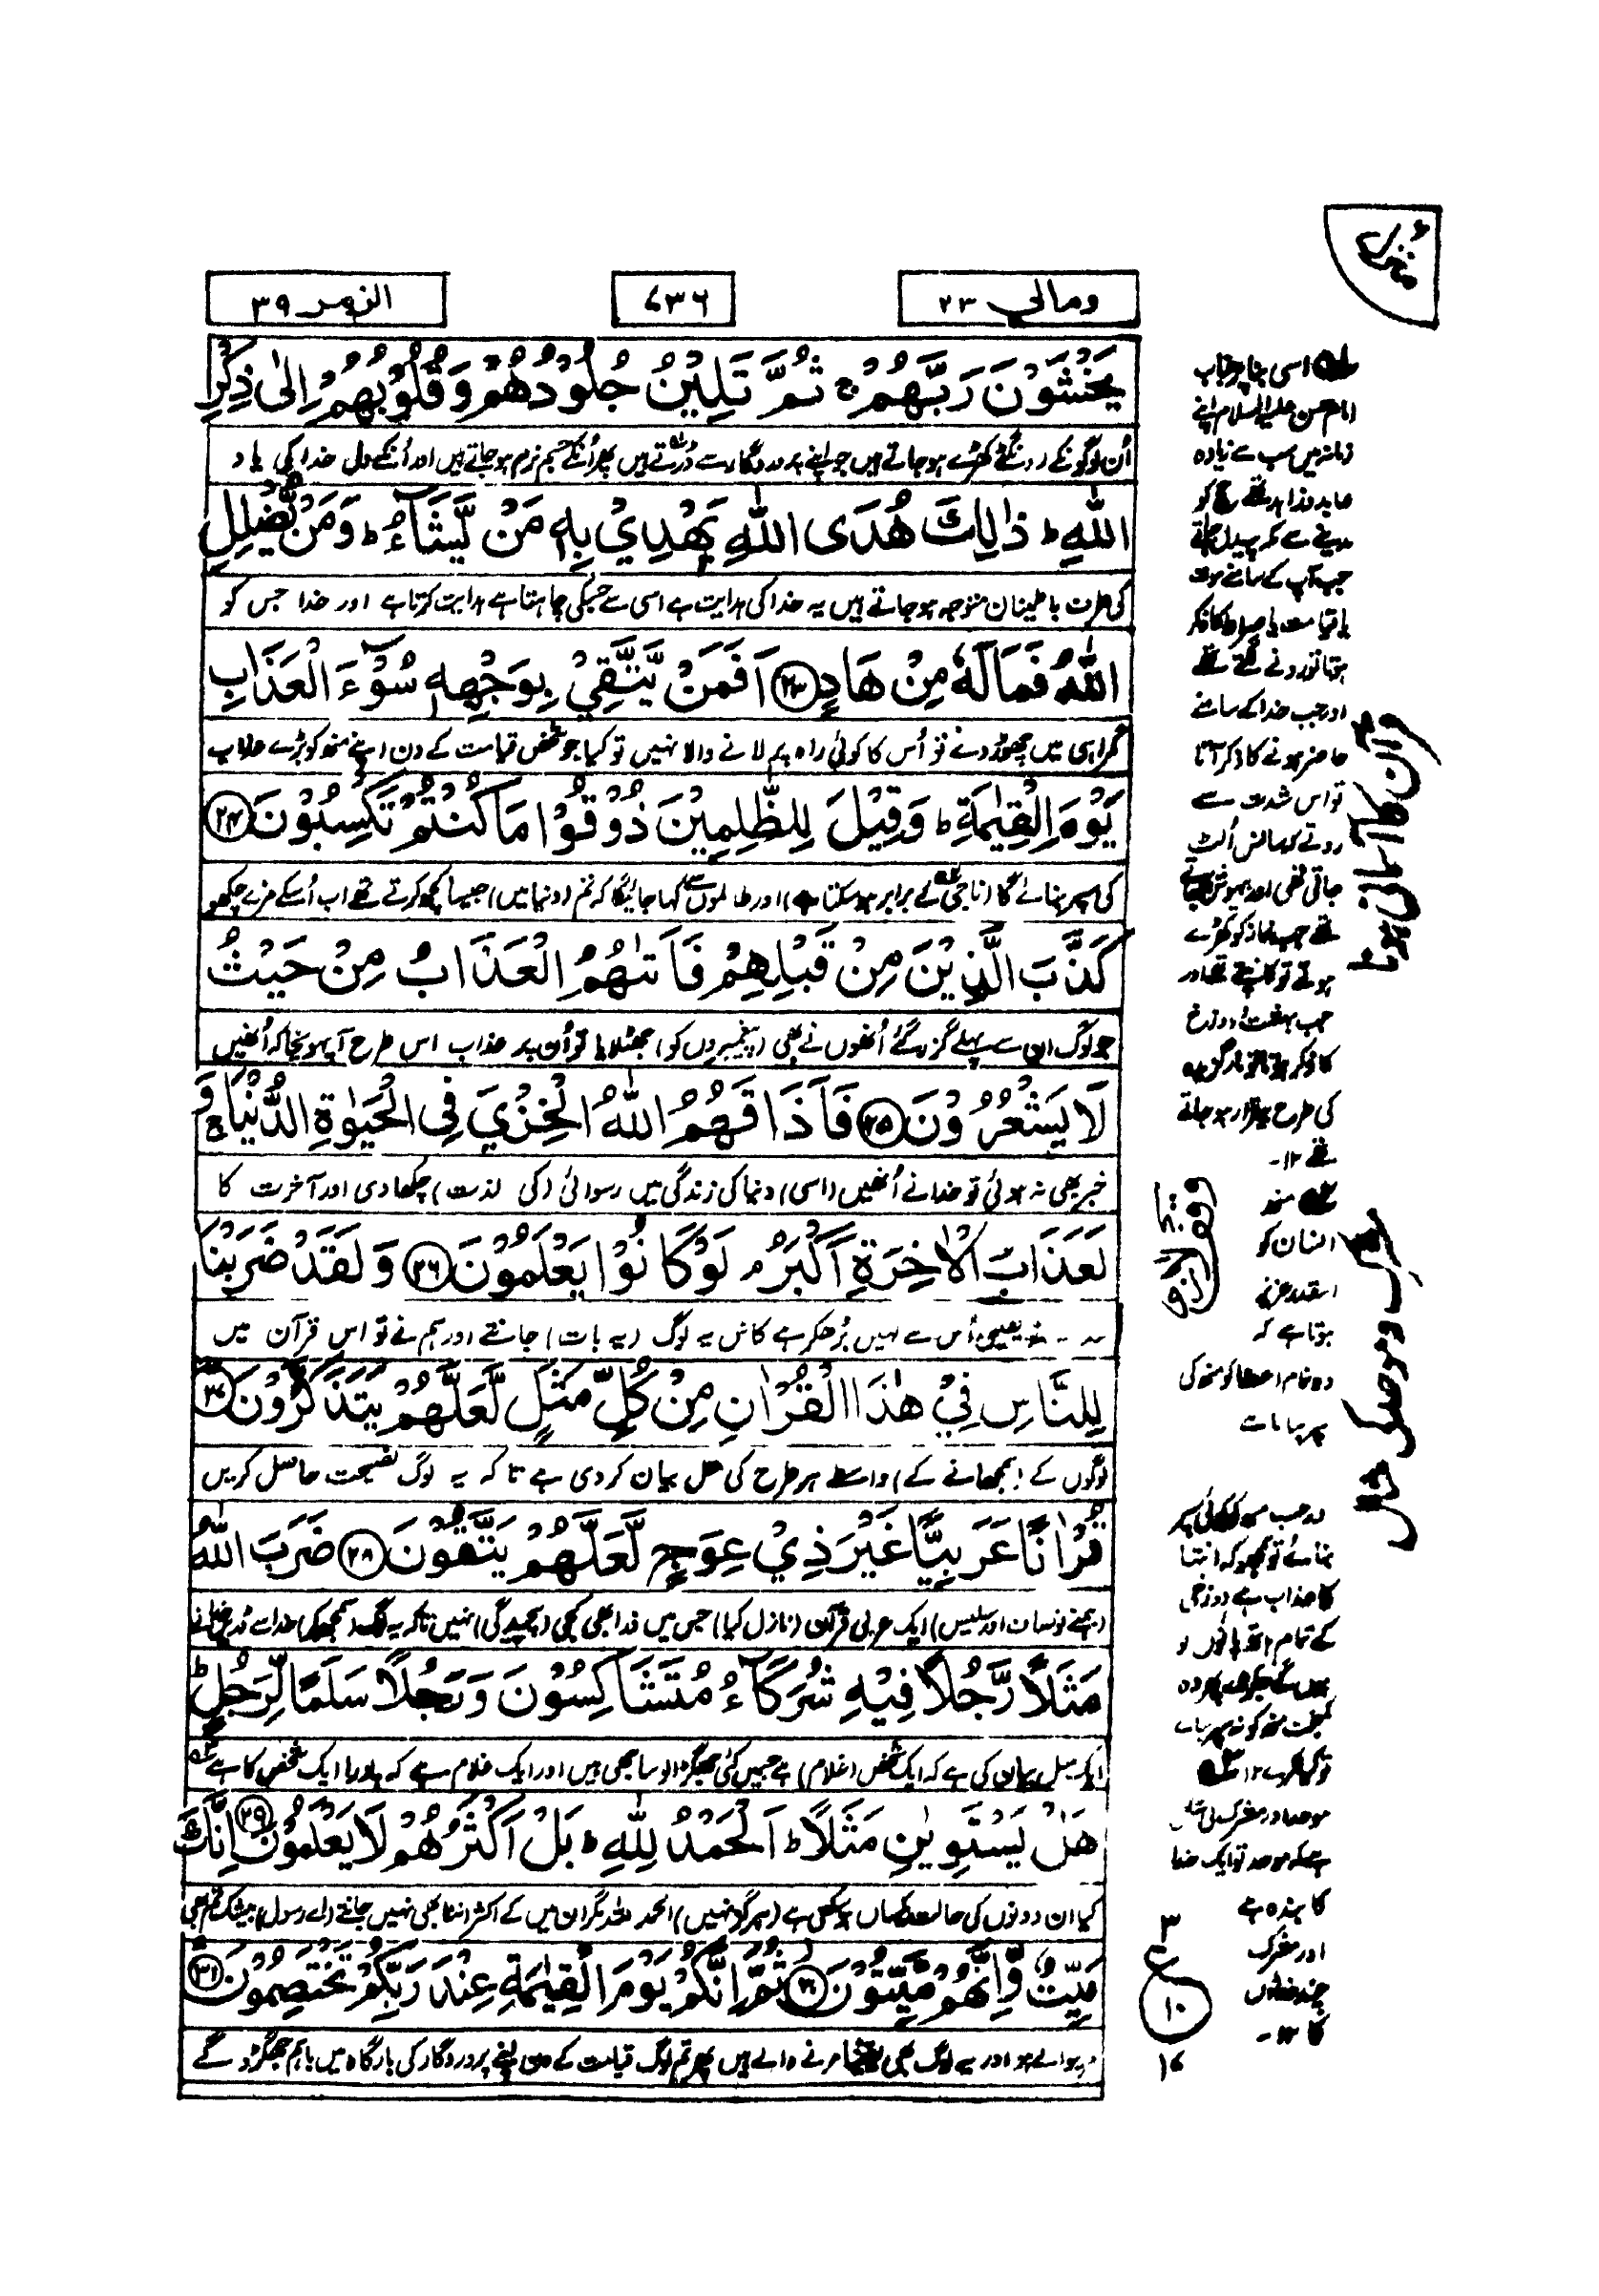 ومالي ٢٣
٧٣٦
الزمر ٣٩
يَخْشَوْنَ رَبَّهُمْ ۚ ثُمَّ تَلِيْنُ جُلُوْدُهُمْ وَقُلُوْبُهُمْ اِلٰى ذِكْرِ
اُن لوگونکے رونگٹے کھڑے ہو جاتے ہیں جو اپنے پروردگار سے ڈرتے ہیں پھر اُنکے جسم نرم ہو جاتے ہیں اور اُنکے دل خدا کی یاد
اللّٰهِ ؕ ذٰلِكَ هُدَى اللّٰهِ يَهْدِيْ بِهٖ مَنْ يَّشَآءُ ؕ وَمَنْ يُّضْلِلِ
کی طرف باطمینان متوجہ ہو جاتے ہیں یہ خدا کی ہدایت ہے اسی سے جسکی چاہتا ہے ہدایت کرتا ہے اور خدا جس کو
اللّٰهُ فَمَا لَهٗ مِنْ هَادٍ ٢٣ اَفَمَنْ يَّتَّقِيْ بِوَجْهِهٖ سُوْٓءَ الْعَذَابِ
گمراہی میں چھوڑ دے تو اُس کا کوئی راہ پر لانے والا نہیں تو کیا جو شخص قیامت کے دن اپنے منھ کو بڑے عذاب
يَوْمَ الْقِيٰمَةِ ؕ وَقِيْلَ لِلظّٰلِمِيْنَ ذُوْقُوْا مَا كُنْتُمْ تَكْسِبُوْنَ ٢٤
کی سپر بنائے گا (ناجی کے برابر ہو سکتا ہے) اور ظالموں سے کہا جائیگا کہ تم (دنیا میں) جیسا کچھ کرتے تھے اب اُسکے مزے چکھو
كَذَّبَ الَّذِيْنَ مِنْ قَبْلِهِمْ فَاَتٰىهُمُ الْعَذَابُ مِنْ حَيْثُ
جو لوگ ان سے پہلے گزر گئے اُنھوں نے بھی (پیغمبروں کو) جھٹلایا تو اُن پر عذاب اس طرح آ پہونچا کہ اُنھیں
لَا يَشْعُرُوْنَ ٢٥ فَاَذَاقَهُمُ اللّٰهُ الْخِزْيَ فِي الْحَيٰوةِ الدُّنْيَا ۚ وَ
خبر بھی نہ ہوئی تو خدا نے اُنھیں (اسی) دنیا کی زندگی میں رسوائی (کی لذت) چکھا دی اور آخرت کا
لَعَذَابُ الْاٰخِرَةِ اَكْبَرُ ۘ لَوْ كَانُوْا يَعْلَمُوْنَ ٢٦ وَلَقَدْ ضَرَبْنَا
یقینی اُس سے کہیں بڑھکر ہے کاش یہ لوگ (یہ بات) جانتے اور ہم نے تو اس قرآن میں
لِلنَّاسِ فِيْ هٰذَا الْقُرْاٰنِ مِنْ كُلِّ مَثَلٍ لَّعَلَّهُمْ يَتَذَكَّرُوْنَ ٢٧
لوگوں کے (سمجھانے کے) واسطے ہر طرح کی مثل بیان کر دی ہے تا کہ یہ لوگ نصیحت حاصل کریں
قُرْاٰنًا عَرَبِيًّا غَيْرَ ذِيْ عِوَجٍ لَّعَلَّهُمْ يَتَّقُوْنَ ٢٨ ضَرَبَ اللّٰهُ
(ہمنے تو صاف اور سلیس) ایک عربی قرآن (نازل کیا) جس میں ذرا بھی کجی (پیچیدگی) نہیں تا کہ یہ لوگ (سمجھکر) خدا سے ڈریں خدا نے
مَثَلًا رَّجُلًا فِيْهِ شُرَكَآءُ مُتَشٰكِسُوْنَ وَرَجُلًا سَلَمًا لِّرَجُلٍ ؕ
ایک مثل بیان کی ہے کہ ایک شخص (غلام) ہے جسمیں کئی جھگڑالو ساجھی ہیں اور ایک غلام ہے کہ پورا ایک شخص کا ہے
هَلْ يَسْتَوِيٰنِ مَثَلًا ؕ اَلْحَمْدُ لِلّٰهِ ؕ بَلْ اَكْثَرُهُمْ لَا يَعْلَمُوْنَ ٢٩ اِنَّكَ
کیا ان دونوں کی حالت یکساں ہو سکتی ہے (ہرگز نہیں) الحمد للہ مگر ان میں کے اکثر اتنا بھی نہیں جانتے (اے رسول) بیشک تم بھی
مَيِّتٌ وَّاِنَّهُمْ مَّيِّتُوْنَ ٣٠ ثُمَّ اِنَّكُمْ يَوْمَ الْقِيٰمَةِ عِنْدَ رَبِّكُمْ تَخْتَصِمُوْنَ ٣١
ہو اور یہ لوگ بھی یقیناً مرنے والے ہیں پھر تم لوگ قیامت کے دن اپنے پروردگار کی بارگاہ میں باہم جھگڑو گے
اسی بنا پر جناب
امام حسن علیہ السلام اپنے
زمانہ میں سب سے زیادہ
عابد و زاہد تھے حج کو
مدینے سے مکہ پیدل جاتے
جب آپ کے سامنے موت
یا قیامت یا صراط کا ذکر
ہوتا تو رونے لگتے تھے
اور جب خدا کے سامنے
حاضر ہونے کا ذکر آتا
تو اس شدت سے
روتے کہ سانس اُلٹ
جاتی تھی اور بیہوش ہو جاتے
تھے جب نماز کو کھڑے
ہوتے تو کانپتے تھے اور
جب بہشت و دوزخ
کا ذکر ہوتا تو مار گزیدہ
کی طرح بیقرار ہو جاتے
تھے ١٢-
منھ
انسان کو
اسقدر عزیز
ہوتا ہے کہ
وہ تمام اعضا کو منھ کی
سپر بناتا ہے
اور جب منھ کو کوئی سپر
بنائے تو سمجھو کہ انتہا
کا عذاب ہے دوزخی
کے تمام ہاتھ پاؤں تو
ہوں گے جکڑے پھر وہ
کمبخت منھ کو نہ سپر بنائے
تو کیا کرے ١٢
موحد اور مشرک کی مثل
ہے کہ موحد تو ایک خدا
کا بندہ ہے
اور مشرک
چند خداؤں
کا ١٢-
قرآن کا آسان ہونا
مشرک و موحد کی مثال
٣
ع
١٠
١٧